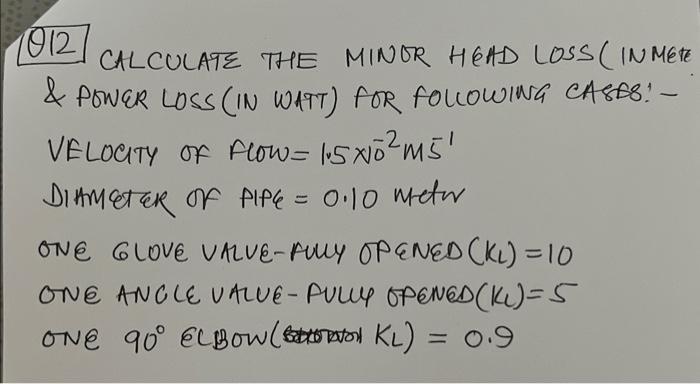 Q12 CALCULATE THE MINOR HEAD LOSS (IN METE
& POWER LOSS (IN WATT) FOR FOLLOWING CASES:-
VELOCITY OF FLOW = 1.5×10⁻² MS⁻¹
DIAMETER OF PIPE = 0.10 Meter
ONE GLOVE VALVE-FULLY OPENED (KL) = 10
ONE ANGLE VALVE-FULLY OPENED (KL) = 5
ONE 90° ELBOW ( KL) = 0.9